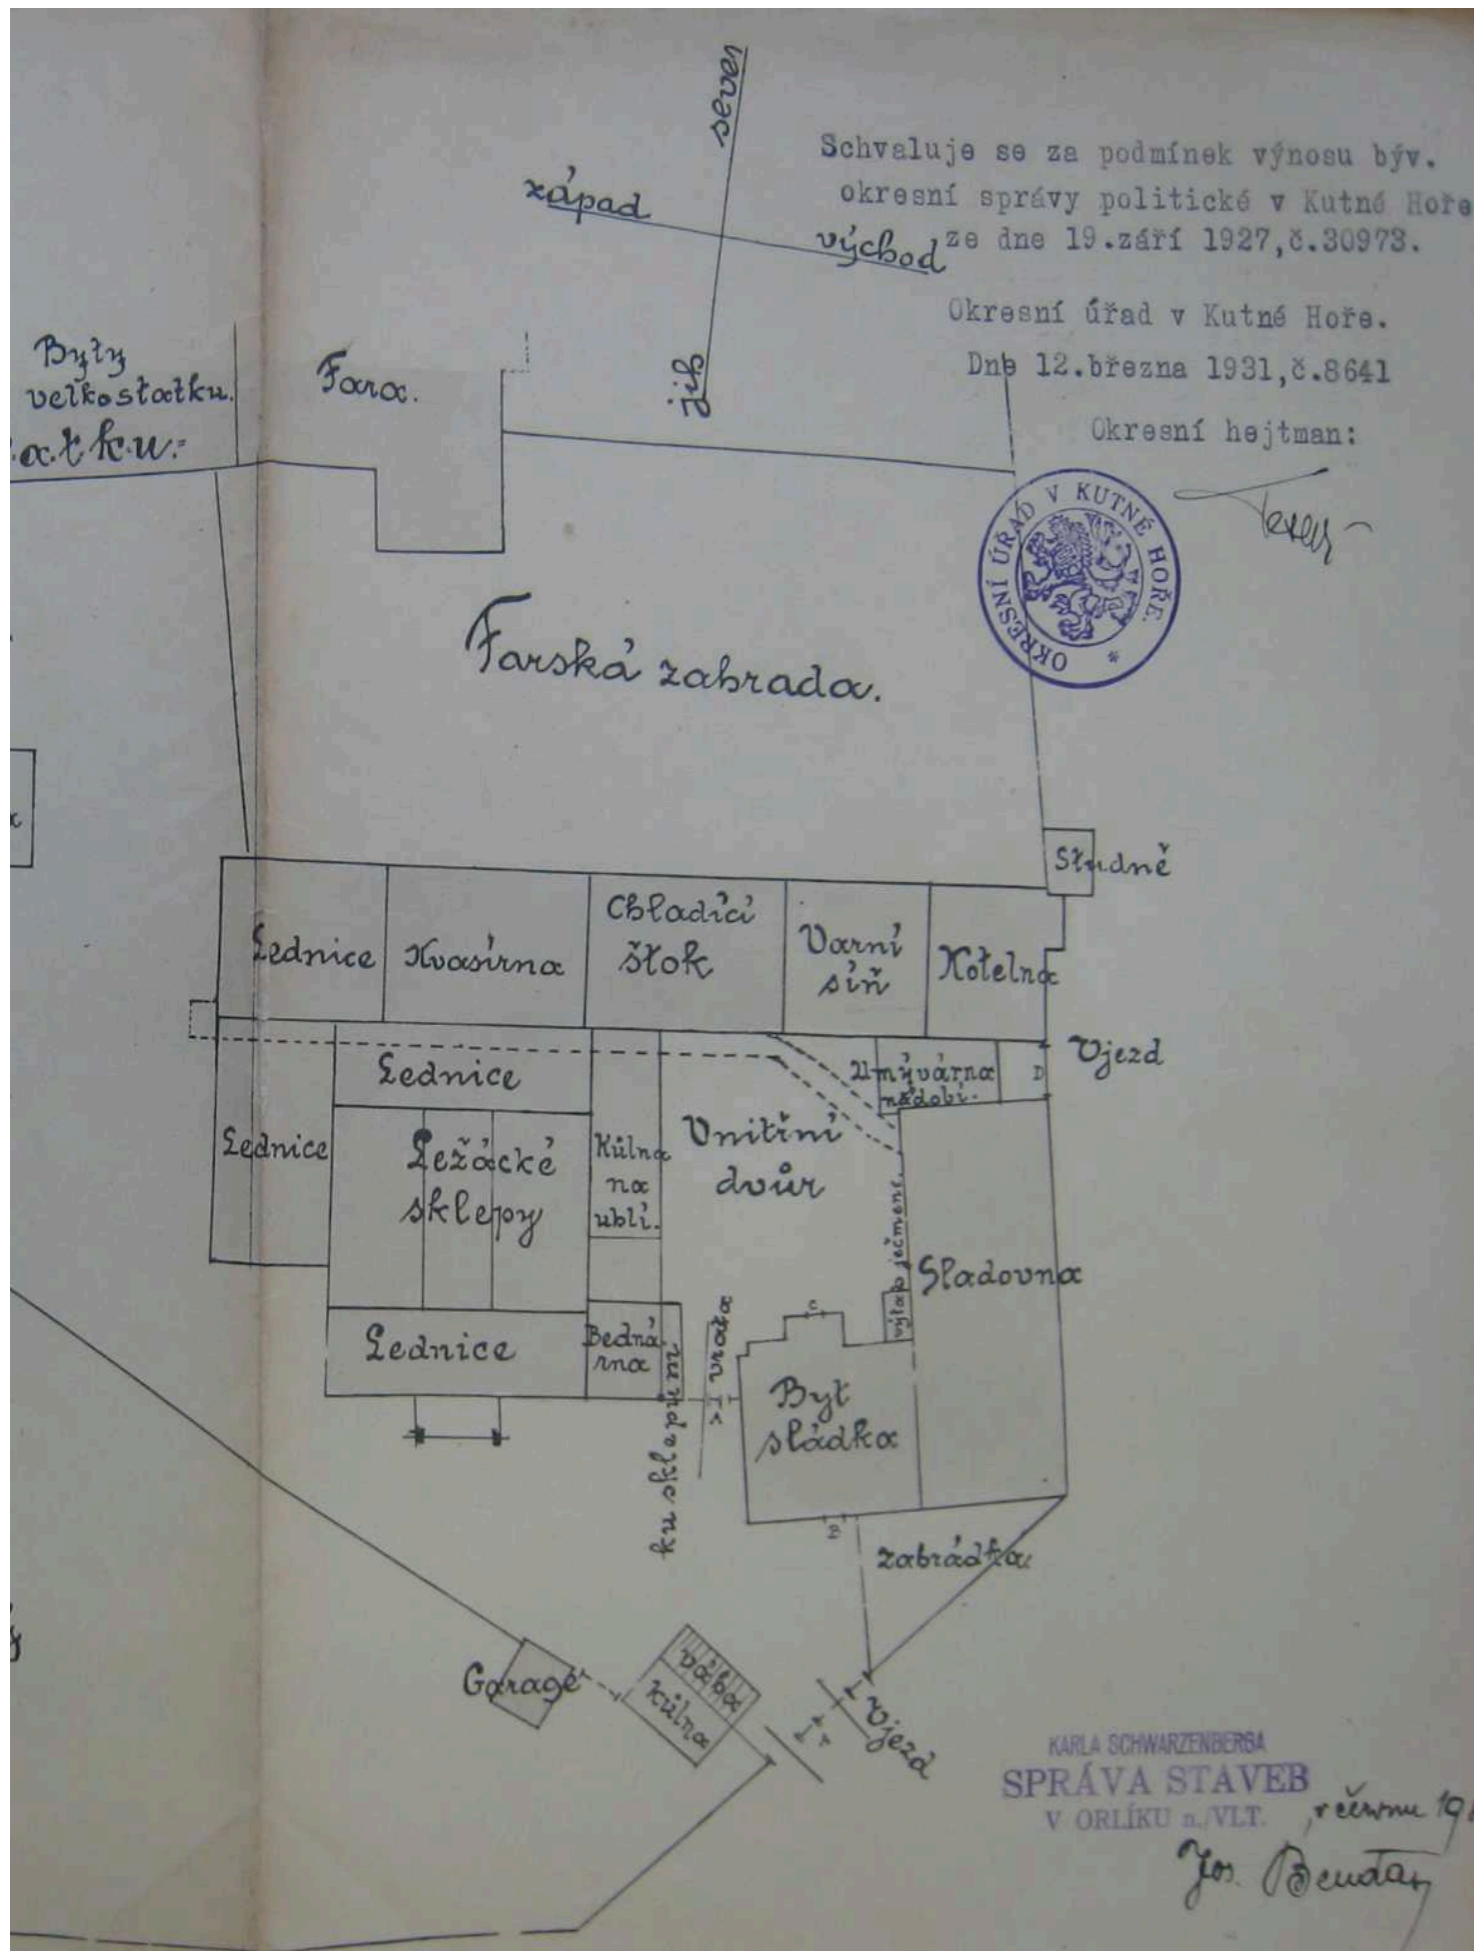 sever
západ
východ
jih
Schvaluje se za podmínek výnosu býv.
okresní správy politické v Kutné Hoře
ze dne 19.září 1927,č.30973.
Okresní úřad v Kutné Hoře.
Dne 12.března 1931,č.8641
Okresní hejtman:
OKRESNÍ ÚŘAD V KUTNÉ HOŘE.
Byty
velkostatku.
Fara.
Farská zahrada.
Studně
Lednice
Kvasírna
Chladící
štok
Varní
síň
Kotelna
Vjezd
Lednice
Umývárna
nádobí.
D
Lednice
Ležácké
sklepy
Kůlna
na
uhlí.
Vnitřní
dvůr
výtah ječmene.
Sladovna
Lednice
Bedná-
rna
ku sklepům
vrata
A
C
Byt
sládka
B
zahrádka
Garage
váha
kůlna
Vjezd
KARLA SCHWARZENBERGA
SPRÁVA STAVEB
V ORLÍKU n./VLT.
Jos.